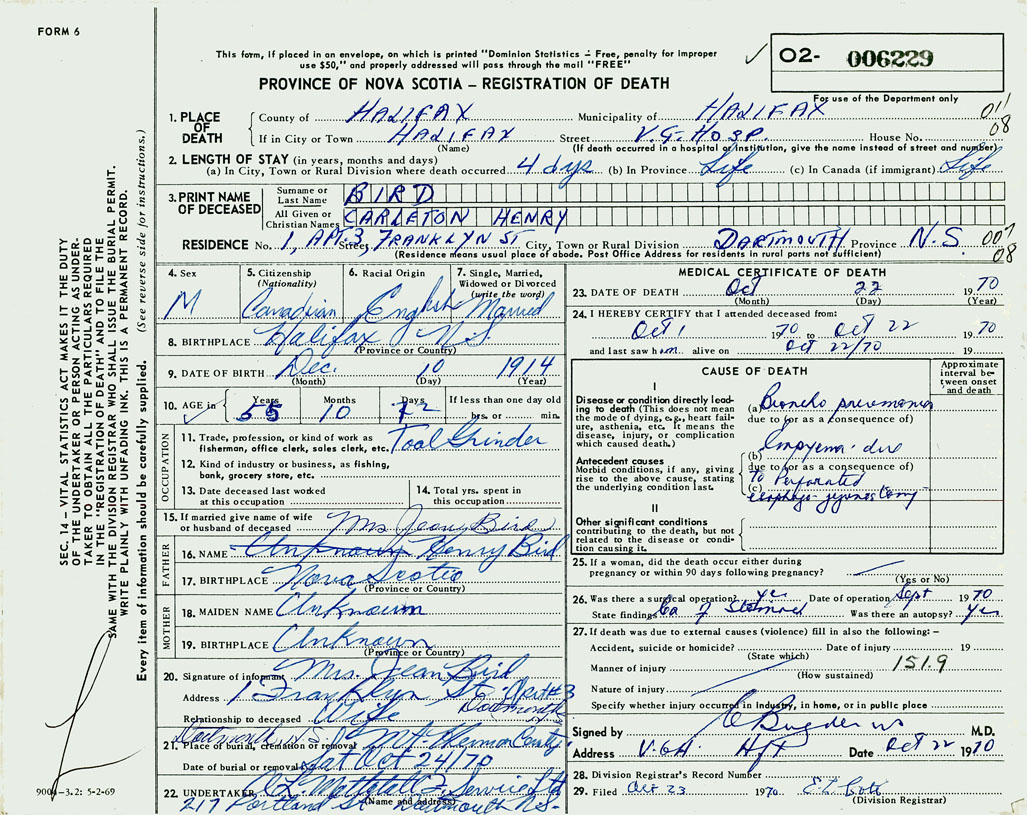 FORM 6
This form, if placed in an envelope, on which is printed "Dominion Statistics – Free, penalty for improper
use $50," and properly addressed will pass through the mail "FREE"
PROVINCE OF NOVA SCOTIA – REGISTRATION OF DEATH
02- 006229
For use of the Department only
1. PLACE OF DEATH
County of HALIFAX Municipality of HALIFAX 011
If in City or Town HALIFAX Street V.G. HOSP. House No. 08
(Name) (If death occurred in a hospital or institution, give the name instead of street and number)
2. LENGTH OF STAY (in years, months and days)
(a) In City, Town or Rural Division where death occurred 4 dys (b) In Province Life (c) In Canada (if immigrant) Life
3. PRINT NAME OF DECEASED
Surname or Last Name BIRD
All Given or Christian Names CARLETON HENRY
RESIDENCE No. 1, APT 3, Street FRANKLYN ST City, Town or Rural Division DARTMOUTH Province N.S. 007
(Residence means usual place of abode. Post Office Address for residents in rural parts not sufficient) 08
4. Sex M
5. Citizenship (Nationality) Canadian
6. Racial Origin English
7. Single, Married, Widowed or Divorced (write the word) Married
8. BIRTHPLACE Halifax N.S.
(Province or Country)
9. DATE OF BIRTH Dec. 10 1914
(Month) (Day) (Year)
10. AGE in Years 55 Months 10 Days 12 If less than one day old
hrs. or min.
OCCUPATION
11. Trade, profession, or kind of work as
fisherman, office clerk, sales clerk, etc. Tool Grinder
12. Kind of industry or business, as fishing,
bank, grocery store, etc.
13. Date deceased last worked
at this occupation
14. Total yrs. spent in
this occupation
15. If married give name of wife
or husband of deceased Mrs Jean Bird
FATHER
16. NAME Unknown Henry Bird
17. BIRTHPLACE Nova Scotia
(Province or Country)
MOTHER
18. MAIDEN NAME Unknown
19. BIRTHPLACE Unknown
(Province or Country)
20. Signature of informant Mrs. Jean Bird
Address 1 Franklyn St. Apt #3
Dartmouth
Relationship to deceased Wife
Dartmouth, N.S.
21. Place of burial, cremation or removal Mt. Hermon
Date of burial or removal Sat Oct 24/70
22. UNDERTAKER Mattatall Service Ltd
(Name and address)
217 Portland St Dartmouth N.S.
MEDICAL CERTIFICATE OF DEATH
23. DATE OF DEATH Oct 22 1970
(Month) (Day) (Year)
24. I HEREBY CERTIFY that I attended deceased from:
Oct 1 1970 to Oct 22 1970
and last saw him alive on Oct 22/70 19
CAUSE OF DEATH
Approximate interval between onset and death
I
Disease or condition directly leading to death (This does not mean the mode of dying, e.g., heart failure, asthenia, etc. It means the disease, injury, or complication which caused death.)
(a) Broncho pneumonia
due to (or as a consequence of)
Antecedent causes
Morbid conditions, if any, giving rise to the above cause, stating the underlying condition last.
(b) Empyema due
due to (or as a consequence of)
to Perforated
(c) esophago-jejunostomy
II
Other significant conditions
contributing to the death, but not related to the disease or condition causing it.
25. If a woman, did the death occur either during
pregnancy or within 90 days following pregnancy?
(Yes or No)
26. Was there a surgical operation? Yes Date of operation Sept 1970
State findings Ca of Stomach Was there an autopsy? Yes
27. If death was due to external causes (violence) fill in also the following: –
Accident, suicide or homicide? Date of injury 19
(State which)
Manner of injury 151.9
(How sustained)
Nature of injury
Specify whether injury occurred in industry, in home, or in public place
Signed by M.D.
Address V.G.H. Hfx Date Oct 22 1970
28. Division Registrar's Record Number
29. Filed Oct 23 1970
(Division Registrar)
SEC. 14 – VITAL STATISTICS ACT MAKES IT THE DUTY
OF THE UNDERTAKER OR PERSON ACTING AS UNDER-
TAKER TO OBTAIN ALL THE PARTICULARS REQUIRED
IN THE "REGISTRATION OF DEATH" AND TO FILE THE
SAME WITH THE DIVISION REGISTRAR WHO SHALL ISSUE THE BURIAL PERMIT.
WRITE PLAINLY WITH UNFADING INK. THIS IS A PERMANENT RECORD.
Every item of information should be carefully supplied. (See reverse side for instructions.)
-3.2: 5-2-69